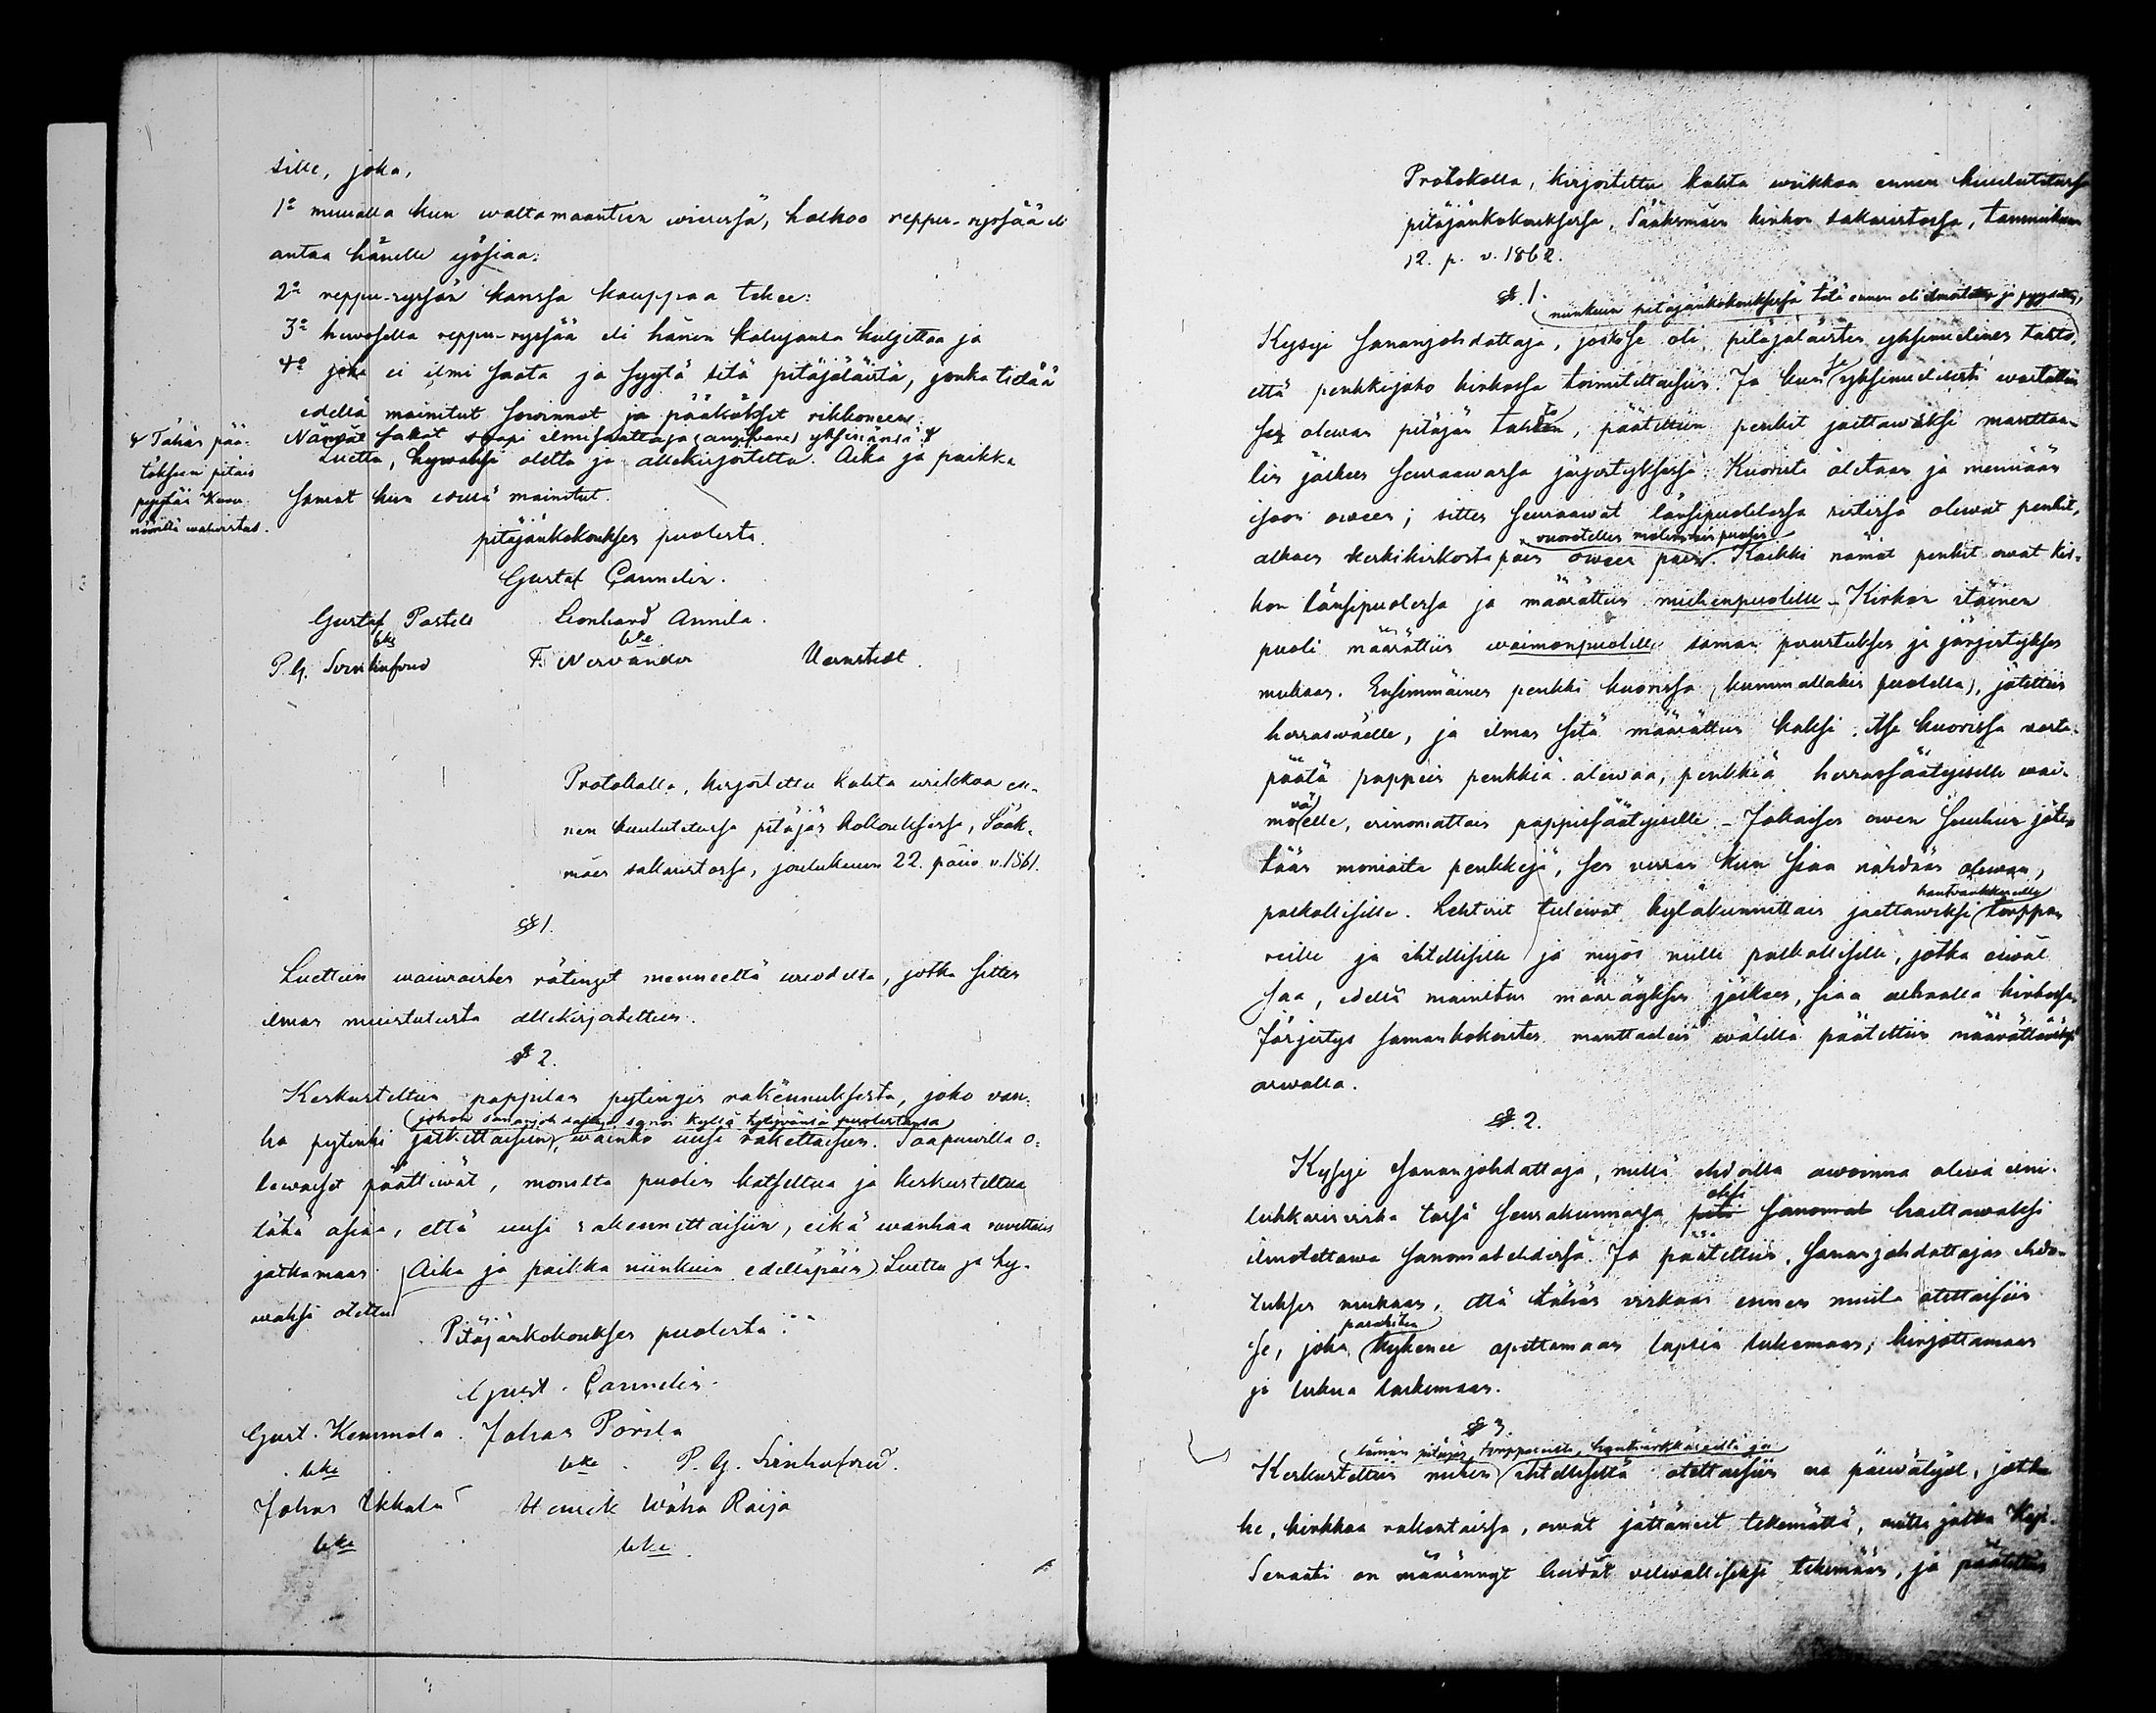 sille, joka,
1:o muualla kun waltamaantien wieressä, holhoo reppu-ryssää eli
antaa hänelle yösiaa:
2:o reppu-ryssän kanssa kauppaa tekee:
3:o hewosella reppu-ryssää eli hänen kalujansa kuljettaa ja
4:o joka ei ilmi saata ja syytä sitä pitäjäläistä, jonka tietää
edellä mainitut sowinnot ja päätökset rikkoneen.
Nämät sakot saapi ilmisaattaja (angifware) yksinänsä.
Luettu, hywäksi otettu ja allekirjoitettu. Aika ja paikka
samat kun edellä mainitut.
Tähän pää-
tökseen pitäis
pyytää Kuwe-
nööriltä wahwistus.
pitäjänkokouksen puolesta.
Gustaf Cannelin.
Gustaf Pastell Leonhard Annila.
P. G. Svinhufvud F. Nervander Uernstedt.
Protokolla, kirjoitettu kahta wiikkoa en-
nen kuulutetussa pitäjän kokouksessa, Sääks-
mäen sakaristossa, joulukuun 22. päiw. v. 1861.
§ 1.
Luettiin waiwaisten rätingit menneeltä wuodelta, jotka sitten
ilman muistutusta allekirjoitettiin.
§ 2.
Keskusteltiin pappilan pytingin rakennuksesta, joko wan-
(johon sananjohdattaja sanoi kyllä tytywänsä puolestansa)
ha pytinki jatkettaisiin, wainko uusi rakettaisiin. Saapuwilla o-
lewaiset päättiwät, monelta puolen katseltua ja keskusteltua
tätä asiaa, että uusi rakennettaisiin, eikä wanhaa ruwettais
jatkamaan. (Aika ja paikka niinkuin edelläpäin) Luettu ja hy-
wäksi otettu
Pitäjänkokouksen puolesta:
Gust. Cannelin.
Gust. Kemmola. Johan Pörilä
P. G. Svinhufvud.
Johan Ukkola Henrik Wäha Raija
Protokolla, kirjoitettu kahta wiikkoa ennen kuulutetussa
pitäjänkokouksessa, Sääksmäen kirkon sakaristossa, tammikuun
12. p. v. 1862.
§. 1.
niinkuin pitäjänkokouksessa tätä ennen oli ilmoitettu ja pyydetty,
Kysyi sananjohdattaja, joskose oli pitäjäläisten yksimielinen tahto,
että penkkijako kirkossa toimitettaisiin. Ja kun se yksimielisesti wastattiin
sen olewan pitäjän tahto, päätettiin penkit jaettawaksi manttaa-
lin jälkeen seuraawassa järjestyksessä: Kuorista aletaan ja mennään
ison oween; sitten seuraawat länsipuolelassa ristissä olewat penkit,
wuorotellen molemmin puolin
alkaen keskikirkosta päin oween päin. Kaikki nämät penkit owat kir-
kon länsipuolessa ja määrättiin miehenpuolille. Kirkon itäinen
puoli määrättiin waimonpuolille saman perustuksen ja järjestyksen
mukaan. Ensimmäinen penkki kuorissa (kummallakin puolella), jätettiin
herraswäelle, ja ilman sitä määrättiin kaksi itse kuorissa wasta-
päätä pappein penkkiä olewaa, penkkiä herrassäätyiselle wai-
moswäelle, erinomattain pappissäätyiselle. Jokaisen owen suuhun jäte-
tään moniaita penkkejä, sen werran kun siaa nähdään olewan,
hantwärkkäreille
palkollisille. Lehterit tulewat kyläkunnittain jaettawiksi torppa-
reille ja itsellisille ja myös niille palkollisille, jotka eiwät
saa, edellä mainitun määräyksen jälkeen, siaa alhaalla kirkossa.
Järjestys samankokoisten manttaalein wälillä päätettiin määrättäwäksi
arwalla.
§. 2.
Kysyi sananjohdattaja, millä ehdoilla awoinna olewa
lukkarinwirka tässä seurakunnassa olisi sanomat haettawaksi
ilmotettawa sanomalehdissä. Ja päätettiin, sananjohdattajan ehdo-
tuksen mukaan, että tähän wirkaan ennen muita otettaisiin
parahiten
se, joka kykenee opettamaan lapsia lukemaan, kirjottamaan
ja lukua laskemaan.
§ 3.
tämän pitäjän torppareilta, hantwärkkäreiltä ja
Keskusteltiin miten itsellisiltä otettaisiin ne päiwätyöt, jotka
he, kirkkoa rakentaissa, owat jättäneet tekemättä, mutta jotka Keis.
Senaati on määrännyt heidät welwollisiksi tekemään, ja päätettiin